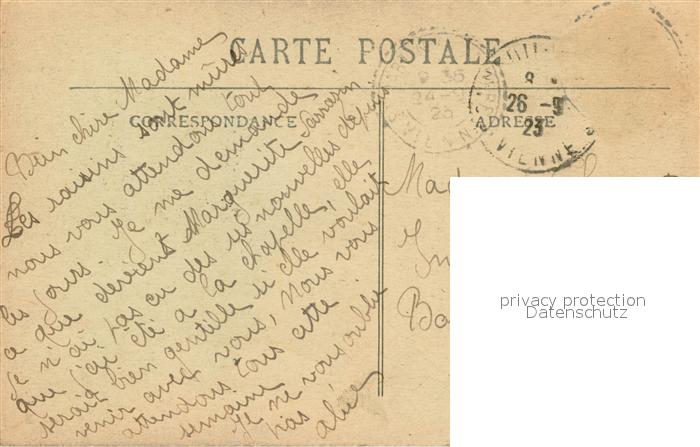 CARTE POSTALE
CORRESPONDANCE
ADRESSE
Bien chère Madame
Les raisins sont mûres
nous vous attendons tout
les jours. Je me demande
a que devient Marguerite Sarrazin
Je n'ai pas eu des ses nouvelles depuis
que j'ai été a la chapelle, elle
serait bien gentille si elle voulait
venir avec vous, Nous vous
attendons tous cette
semaine
Je ne vous oublie
pas
8
26 -9
23
VIENNE
9 35
24-9
23
VIENNE
Mad
Ba
privacy protection
Datenschutz